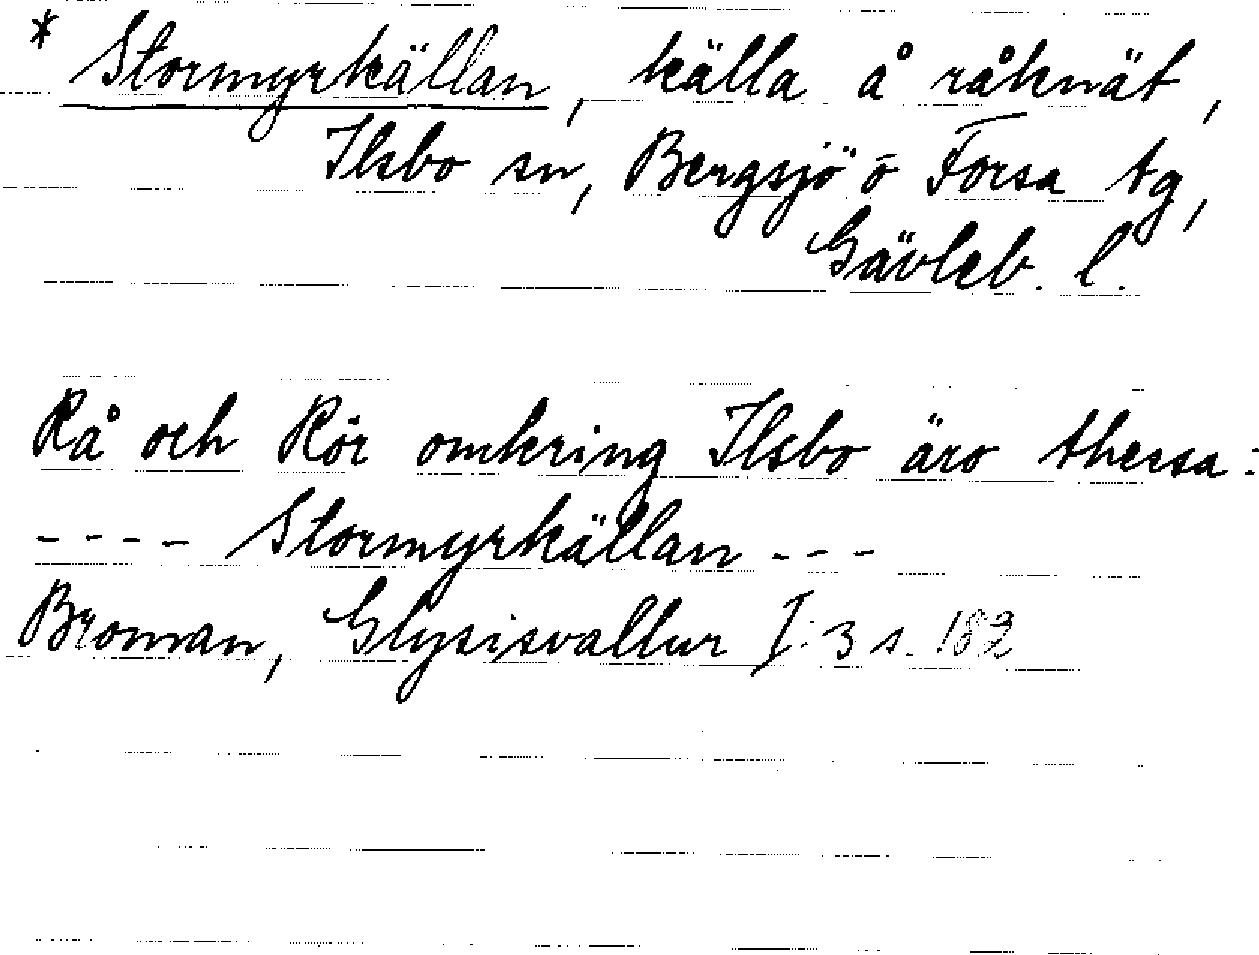 * Stormyrkällan, källa å råknät,
Ilsbo sn, Bergsjö o Forsa tg,
Gävleb. l.
Rå och Rör omkring Ilsbo äro thessa:
---- Stormyrkällan ---
Broman, Glysisvallur I:3 s. 182